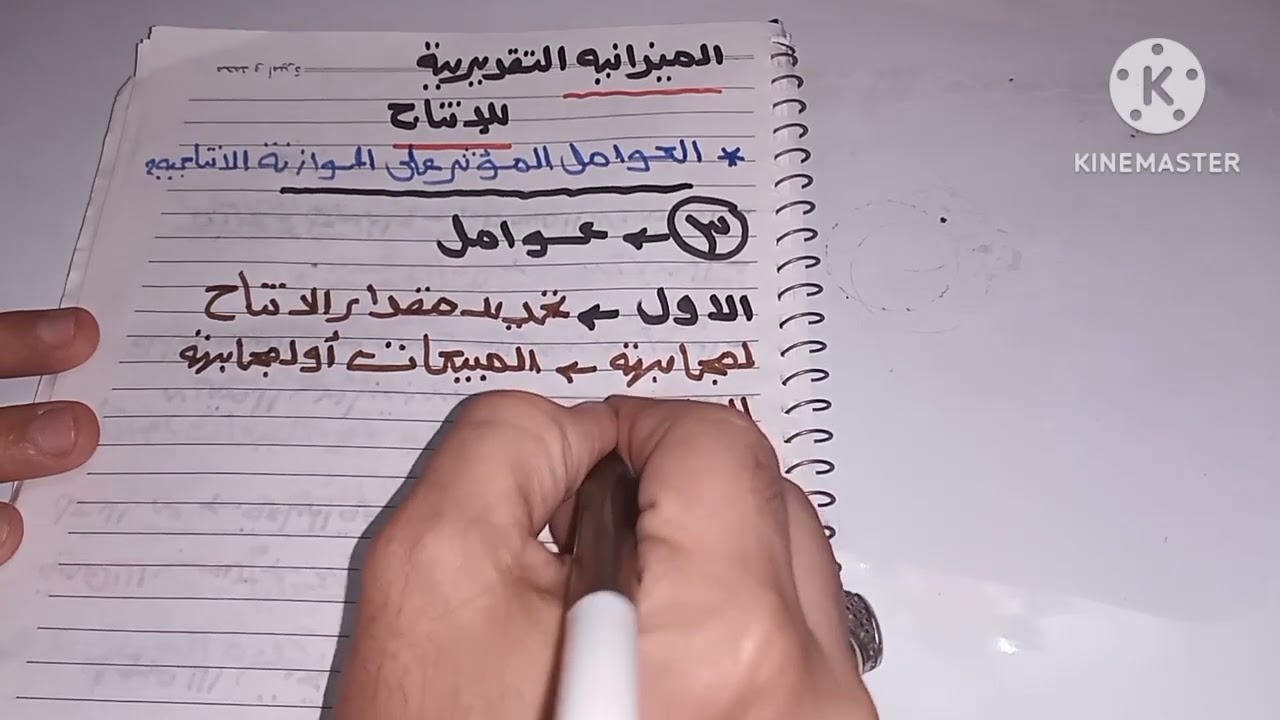 الميزانيه التقديرية
للإنتاج
* العوامل المؤثر على الموازنة الانتاجيه؟
٣ ← عوامل
الاول ← تحديد مقدار الانتاج
لمجابهة ← المبيعات أو لمجابهة
KINEMASTER